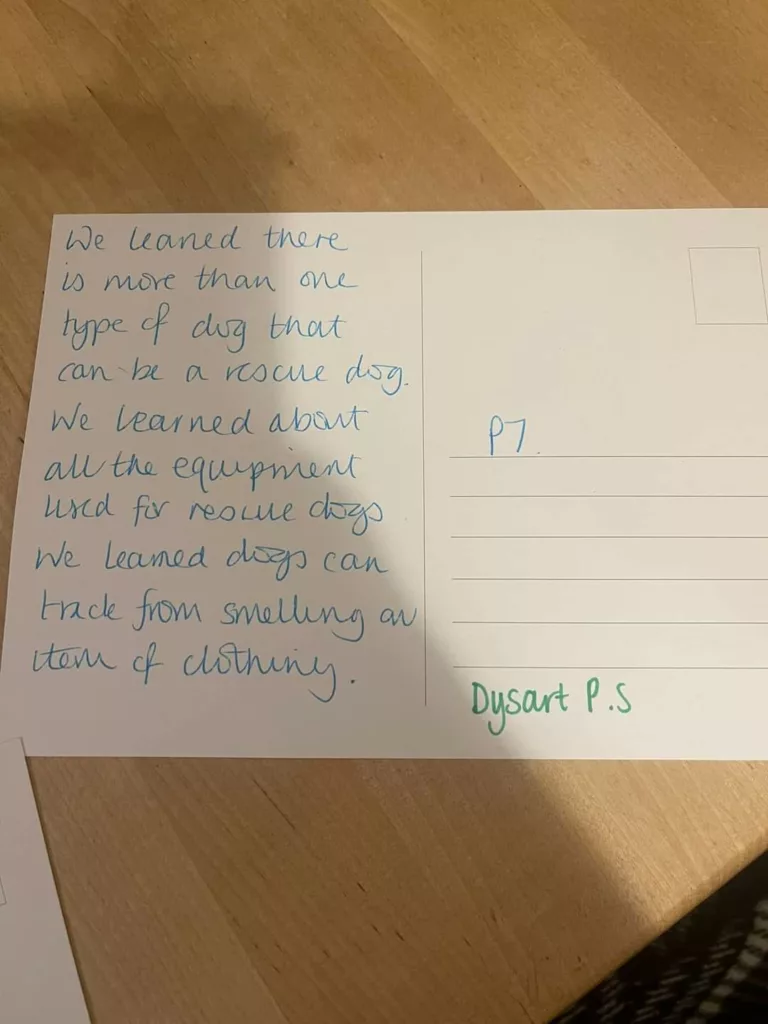 We leaned there
is more than one
type of dog that
can be a rescue dog.
We learned about
all the equipment
used for rescue dogs
We learned dogs can
track from smelling an
item of clothing.
P7.
Dysart P.S